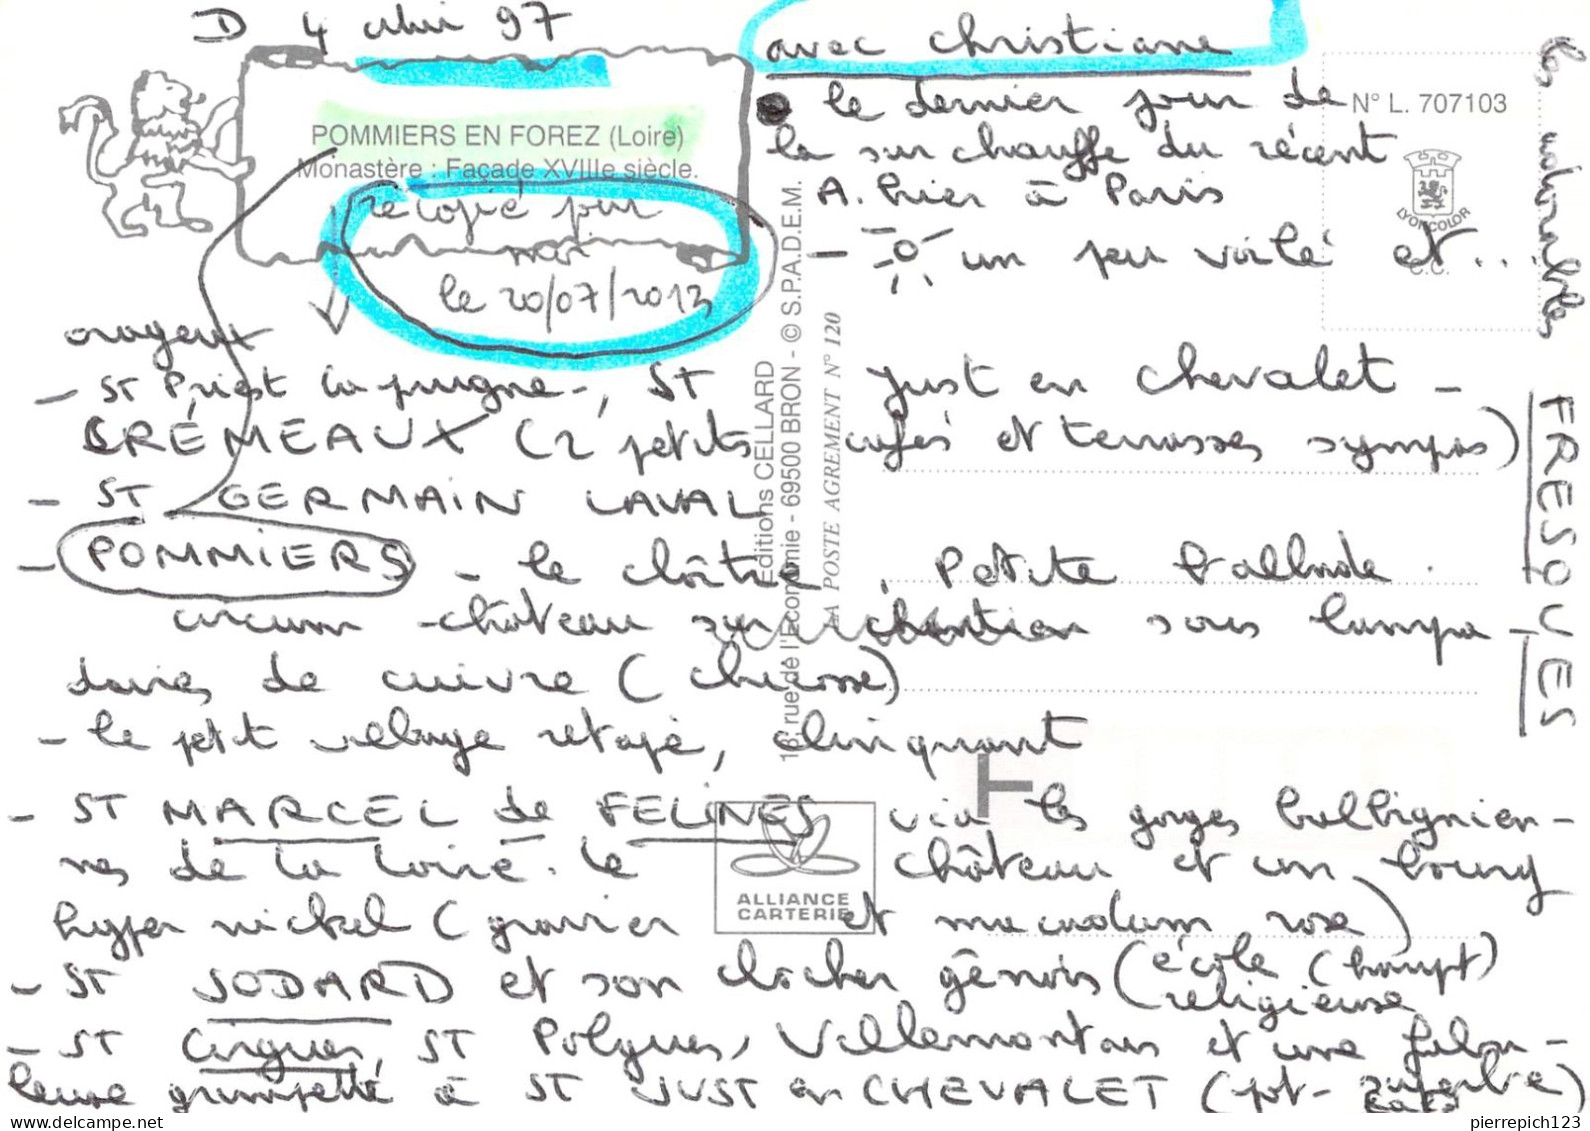 D 4 mai 97
avec christiane
POMMIERS EN FOREZ (Loire)
Monastère : Façade XVIIIe siècle.
recopié par
moi
le 20/07/2013
le dernier jour de
la surchauffe du récent
A. hier à Paris
- un peu voilé et...
orageux
- ST Priest la prugne -, ST Just en chevalet -
CRÉMEAUX (2 petits cafés et terrasses sympas)
- ST GERMAIN LAVAL
- POMMIERS - le cloître, Petite ballade
circum - château sous lampa-
daires de cuivre
- le petit village retapé, clinquant
- ST MARCEL de FELINES via les gorges
nes de la Loire. le château et un bourg
hyper nickel (gravier et macadam rose)
- ST JODARD et son clocher génois (école
religieuse
- ST Cirgues, ST Polgues, Villemontais et une fabu-
leuse grimpette à ST JUST en CHEVALET (pt-
les adorables
FRESQUES
N° L. 707103
LYONCOLOR
C.C.
Editions CELLARD
16, rue de l'Economie - 69500 BRON - © S.P.A.D.E.M.
LA POSTE AGREMENT N° 120
ALLIANCE
CARTERIE
pierrepich123